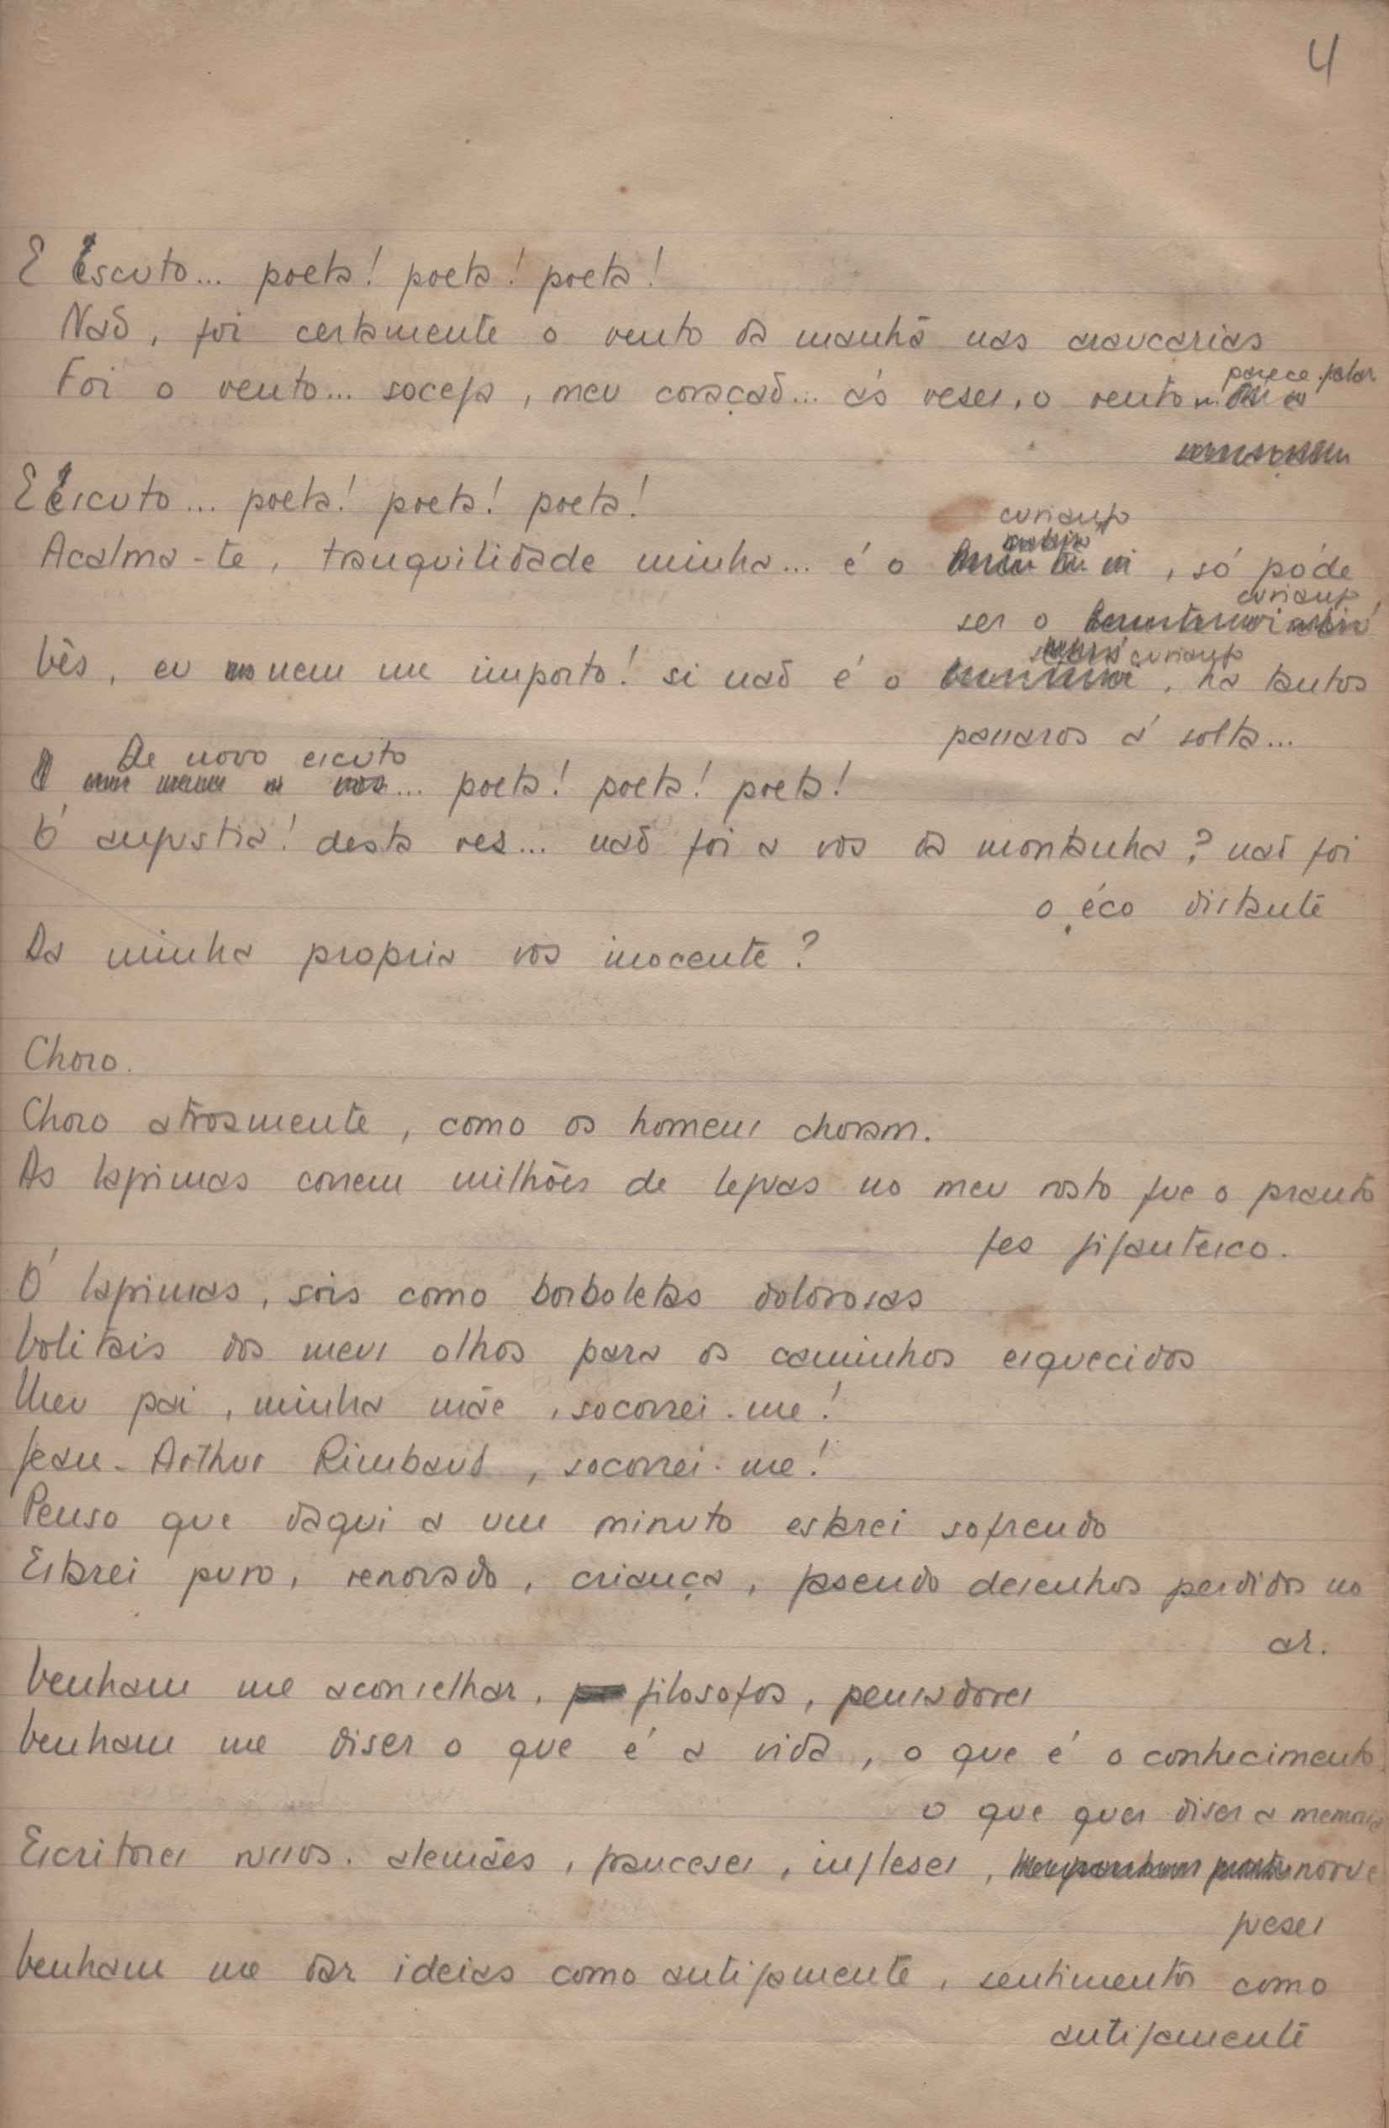 4
E Escuto... poeta! poeta! poeta!
Naõ, foi certamente o vento da manhã nas araucarias
parece falar
Foi o vento... socega, meu coraçaõ... ás veses, o vento
E Escuto... poeta! poeta! poeta!
curiango
Acalma-te, tranquilidade minha... é o , só póde
curiango,
ser o
curiango
Vês, eu nem me importo! si naõ é o , ha tantos
passaros á solta...
De novo escuto
... poeta! poeta! poeta!
Ó angustia! desta ves... naõ foi a vos da montanha? naõ foi
o éco distante
Da minha propria vos inocente?
Choro.
Choro atrosmente, como os homens choram.
As lagrimas correm milhões de leguas no meu rosto que o pranto
fes gigantesco.
Ó lagrimas, sois como borboletas dolorosas
Volitais dos meus olhos para os caminhos esquecidos
Meu pai, minha mãe, socorrei-me!
Jean-Arthur Rimbaud, socorrei-me!
Penso que daqui a um minuto estarei sofrendo
Estarei puro, renovado, criança, fasendo desenhos perdidos no
ar.
Venham me aconselhar, filosofos, pensadores
Venham me diser o que é a vida, o que é o conhecimento
o que quer diser a memoria
Escritores russos, alemães, franceses, ingleses, norue
gueses
Venham me dar ideias como antigamente, sentimentos como
antigamente